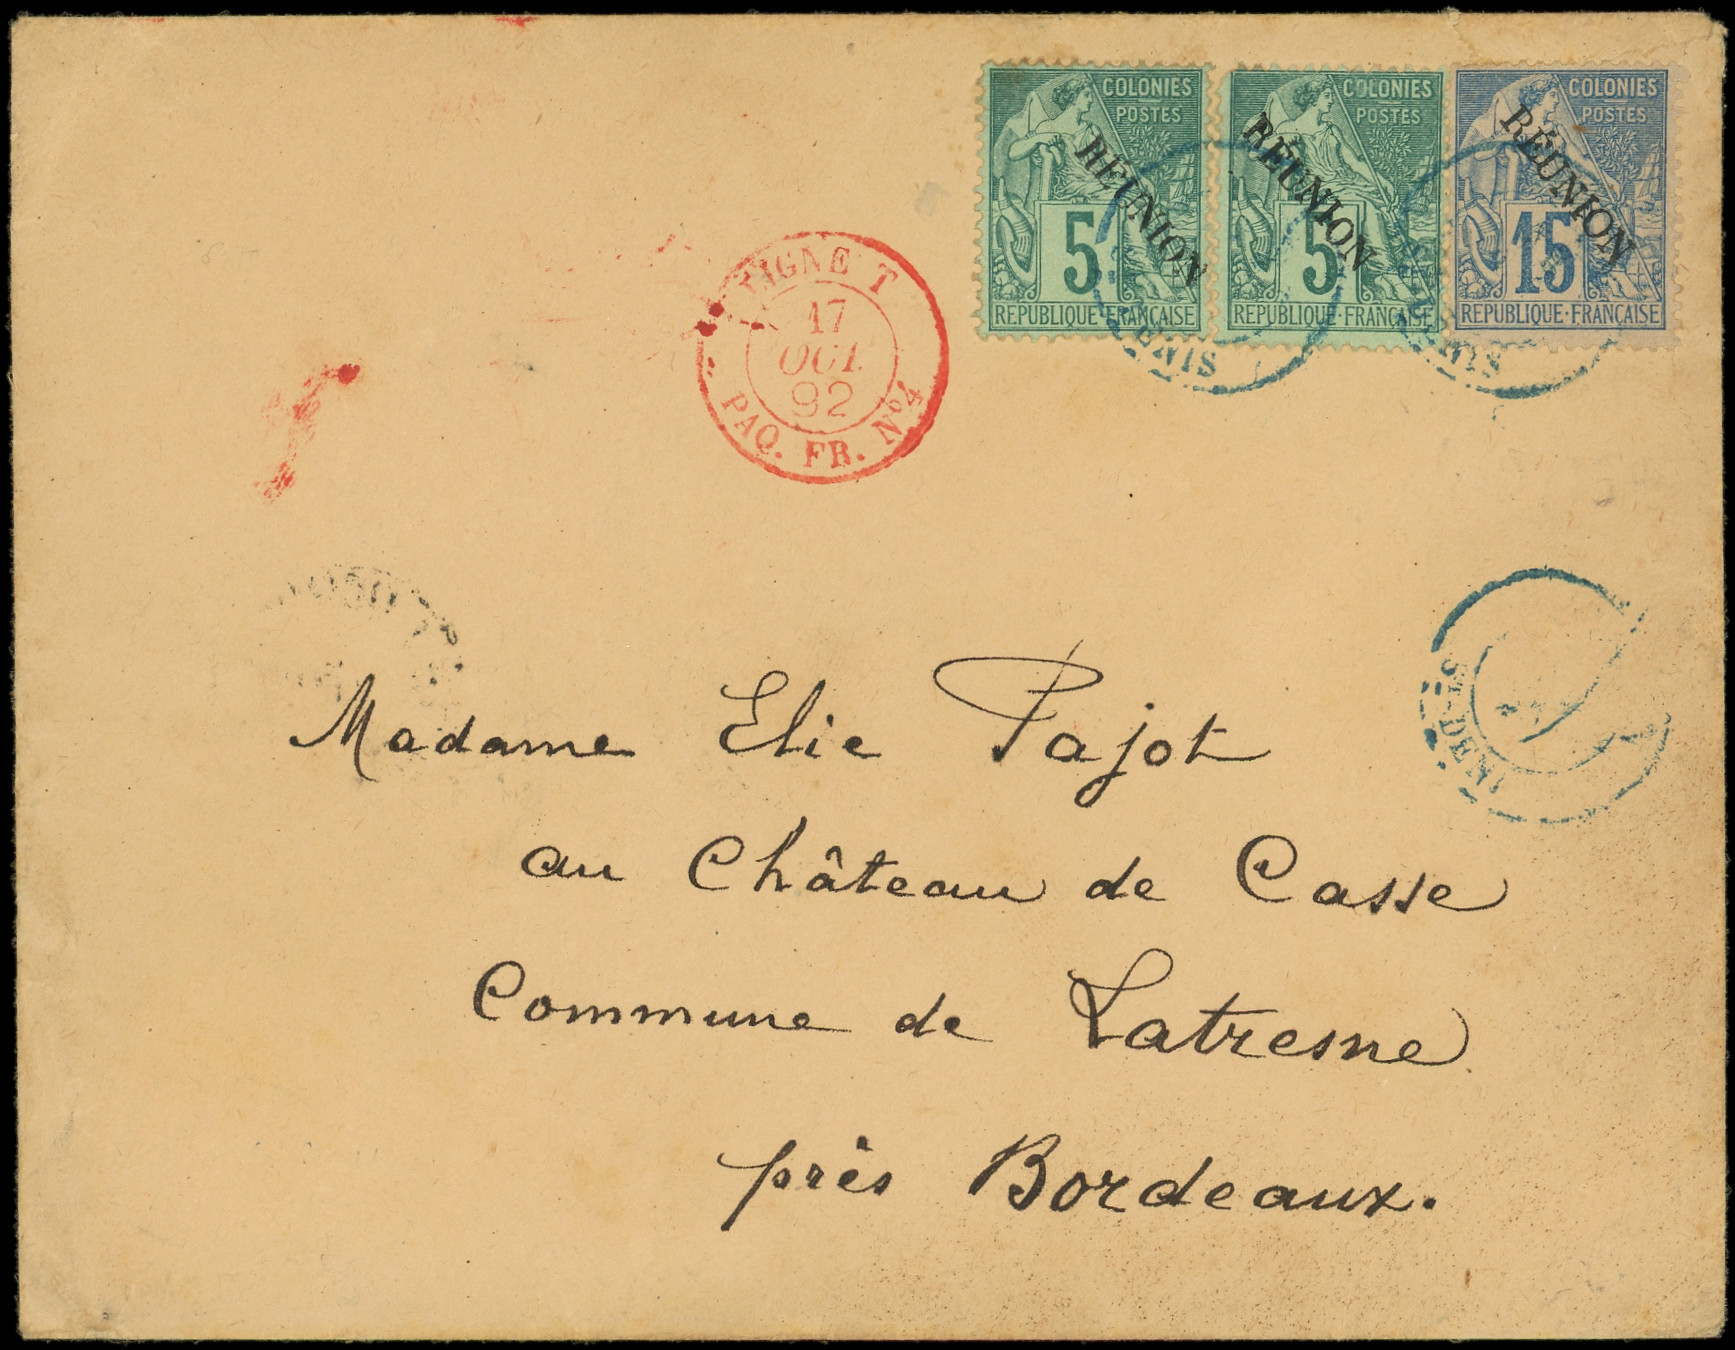 COLONIES
POSTES
RÉUNION
5
REPUBLIQUE·FRANÇAISE
COLONIES
POSTES
RÉUNION
5
REPUBLIQUE·FRANÇAISE
COLONIES
POSTES
RÉUNION
15
REPUBLIQUE·FRANÇAISE
LIGNE T
17
OCT.
92
PAQ. FR. Nº4
ST-DENIS
Madame Elie Pajot
au Château de Casse
Commune de Latresne
près Bordeaux.